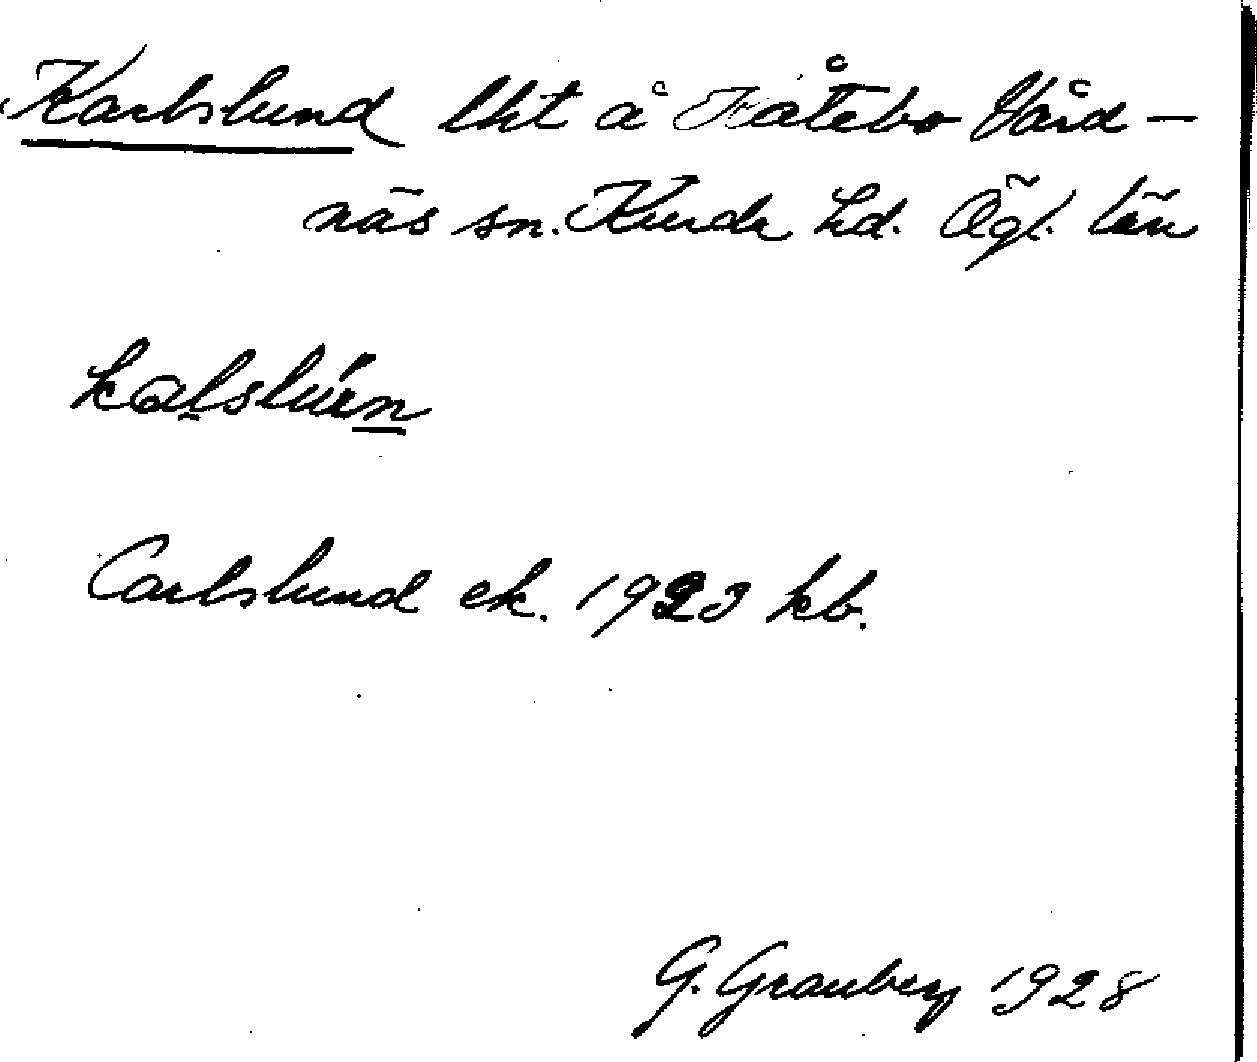 Karlslund lht å Fåtebo Vård-
näs sn. Kinda hd. Ögl. län
kalslún
Carlslund ek. 1923 kb.
G. Granberg 1928